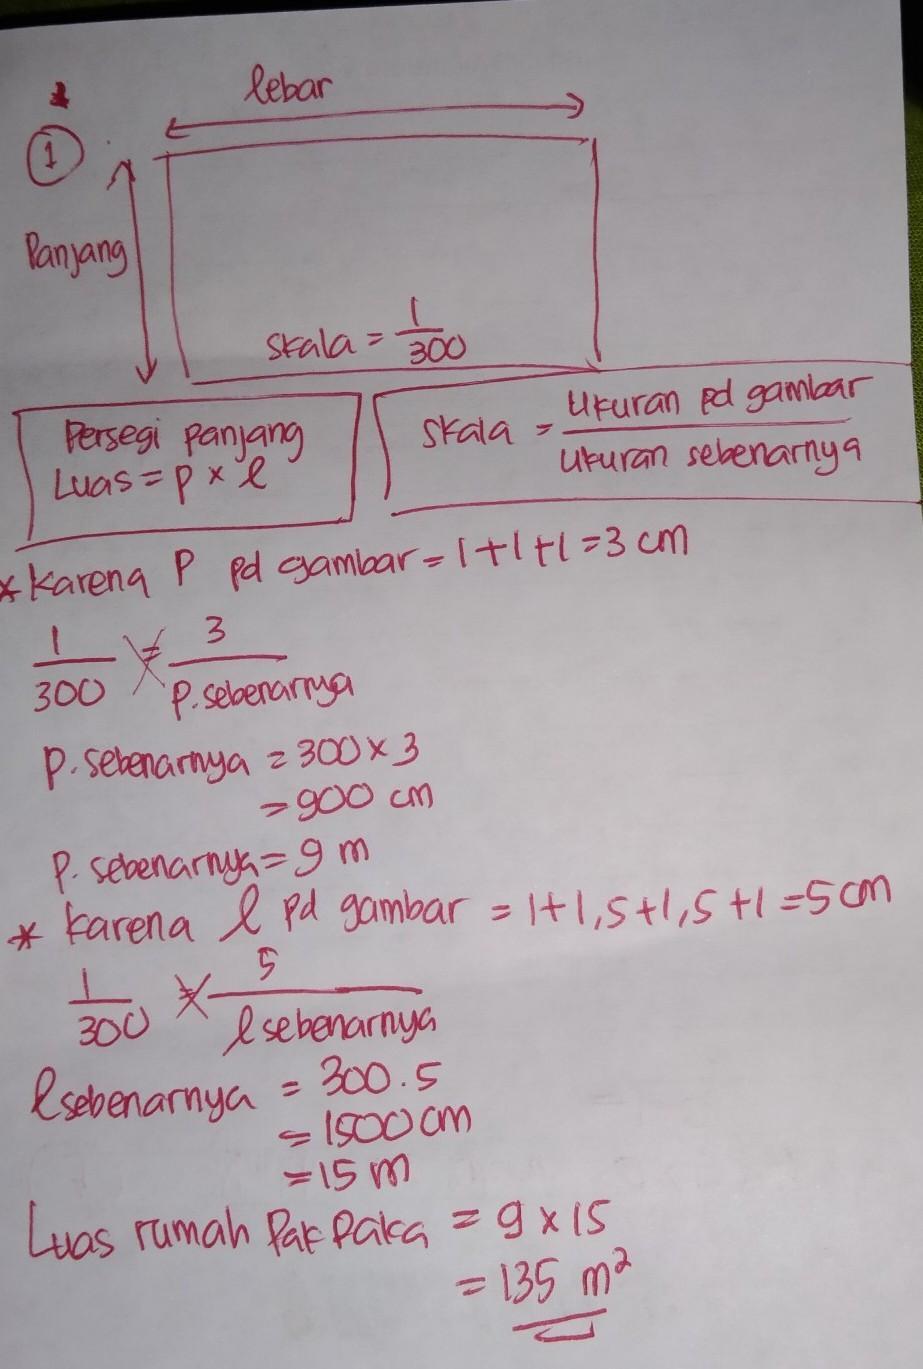 lebar
①
Panjang
Skala = 1/300
Persegi panjang
Luas = p × l
Skala = Ukuran pd gambar / Ukuran sebenarnya
* Karena P pd gambar = 1+1+1 = 3 cm
1/300 = 3/p.sebenarnya
p. sebenarnya = 300 × 3
= 900 cm
p. sebenarnya = 9 m
* Karena l pd gambar = 1+1,5+1,5+1 = 5 cm
1/300 = 5/l sebenarnya
l sebenarnya = 300 . 5
= 1500 cm
= 15 m
Luas rumah Pak Paka = 9 × 15
= 135 m²